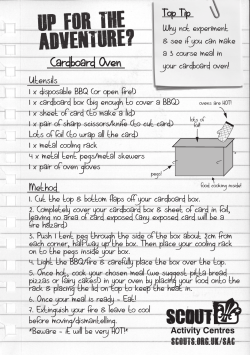 UP FOR THE
ADVENTURE?
Cardboard Oven
Top Tip
Why not experiment
& see if you can make
a 3 course meal in
your cardboard oven!
Utensils
1 x disposable BBQ (or open fire!)
1 x cardboard box (big enough to cover a BBQ)
1 x sheet of card (to make a lid)
1 x pair of sharp scissors/knife (to cut card)
Lots of foil (to wrap all the card)
1 x metal cooling rack
4 x metal tent pegs/metal skewers
1 x pair of oven gloves
ovens are HOT!
lots of
foil
pegs!
food cooking inside!
Method
1. Cut the top & bottom flaps off your cardboard box.
2. Completely cover your cardboard box & sheet of card in foil,
leaving no area of card exposed (any exposed card will be a
fire hazard)
3. Push 1 tent peg through the side of the box about 2cm from
each corner, half-way up the box. Then place your cooling rack
on to the pegs inside your box.
4. Light the BBQ/fire & carefully place the box over the top.
5. Once hot, cook your chosen meal (we suggest pitta bread
pizzas or fairy cakes!) in your oven by placing your food onto the
rack & placing the lid on top to keep the heat in.
6. Once your meal is ready - Eat!
7. Extinguish your fire & leave to cool
before moving/dismantelling.
*Beware - it will be very HOT!*
SCOUT
Activity Centres
SCOUTS.ORG.UK/SAC